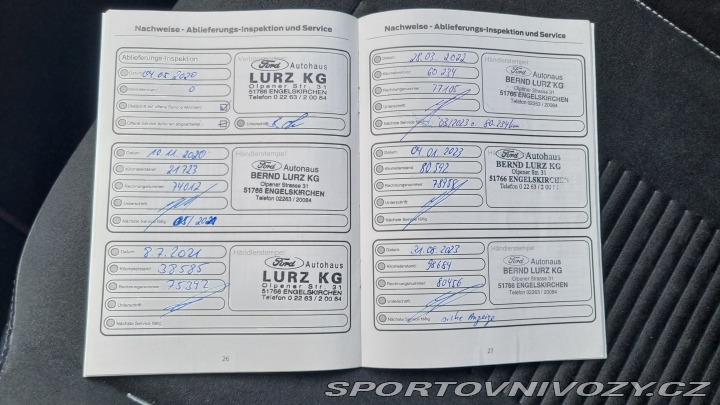 Nachweise - Ablieferungs-Inspektion und Service
Ablieferungs-Inspektion
Datum 04.05.2020
Kilometerstand 0
Unterschrift
Ford Autohaus
LURZ KG
Olpener Str. 31
51766 ENGELSKIRCHEN
Telefon 0 22 63 / 2 00 84
Datum 10.11.2020
Kilometerstand 21723
Rechnungsnummer 74012
Unterschrift
Nächste Service fällig
Händlerstempel
Ford Autohaus
BERND LURZ KG
Olpener Strasse 31
51766 ENGELSKIRCHEN
Telefon 02263 / 20084
Datum 8.7.2021
Kilometerstand 38585
Rechnungsnummer 75342
Unterschrift
Nächste Service fällig
Händlerstempel
Ford Autohaus
LURZ KG
Olpener Str. 31
51766 ENGELSKIRCHEN
Telefon 0 22 63 / 2 00 84
26
Nachweise - Ablieferungs-Inspektion und Service
Datum 28.03.2022
Kilometerstand 60.234
Rechnungsnummer 77105
Unterschrift
Nächste Service fällig 03/2023 o. 80.234km
Händlerstempel
Ford Autohaus
BERND LURZ KG
Olpener Strasse 31
51766 ENGELSKIRCHEN
Telefon 02263 / 20084
Datum 04.01.2023
Kilometerstand 80542
Rechnungsnummer 78958
Unterschrift
Nächste Service fällig
Händlerstempel
Ford Autohaus
BERND LURZ KG
Olpener Str. 31
51766 ENGELSKIRCHEN
Telefon 0 22 63 / 2 00 84
Datum 31.08.2023
Kilometerstand 98684
Rechnungsnummer 80456
Unterschrift
Nächste Service fällig siehe Anzeige
Händlerstempel
Ford Autohaus
BERND LURZ KG
Olpener Strasse 31
51766 ENGELSKIRCHEN
Telefon 02263 / 20084
27
SPORTOVNIVOZY.CZ